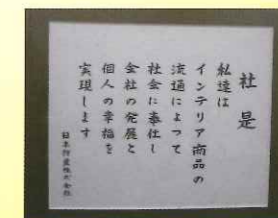 社是
私達は
インテリア商品の
流通によって
社会に奉仕し
会社の発展と
個人の幸福を
実現します